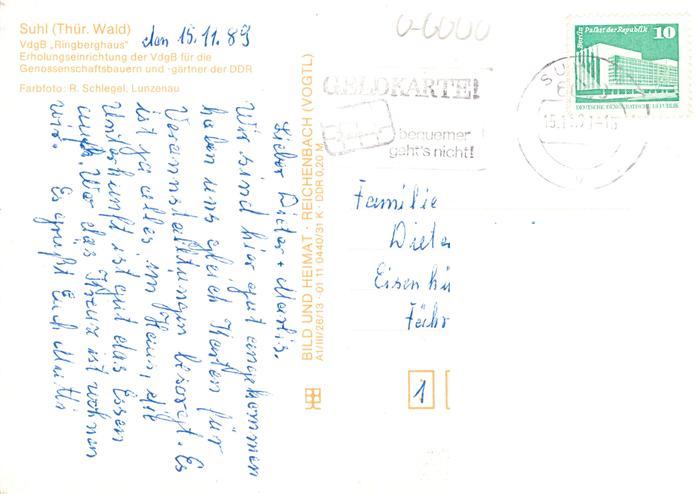 Suhl (Thür. Wald)
VdgB „Ringberghaus"
Erholungseinrichtung der VdgB für die
Genossenschaftsbauern und -gärtner der DDR
Farbfoto: R. Schlegel, Lunzenau
den 15.11.89
Lieber Dieter + Marlis.
Wir sind hier gut angekommen
haben uns gleich Karten für
Veranstaltungen besorgt. Es
ist ja alles im Haus, die
Unterkunft ist gut das Essen
auch. Wo das Kreuz ist wohnen
wir. Es grüßt Euch Mutti
BILD UND HEIMAT · REICHENBACH (VOGTL)
A1/III/26/13 · 01 11 0440/31 K · DDR 0,20 M
GELDKARTE!
bequemer
geht's nicht!
SU
15.11.89
Berlin Palast der Republik 10
DEUTSCHE DEMOKRATISCHE REPUBLIK
Familie
Diete
Eisenhü
Fähr
1